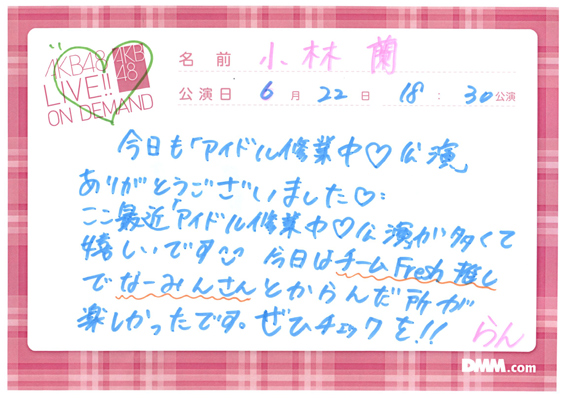 AKB48
AKB
48
LIVE!!
ON DEMAND
名前 小林 蘭
公演日 6月22日 18:30公演
今日も「アイドル修業中♡公演
ありがとうございました♡
ここ最近「アイドル修業中♡公演が多くて
嬉しいです 今日はチームFresh推し
でなーみんさんとからんだ所が
楽しかったです。ぜひチェックを!!
らん
DMM.com